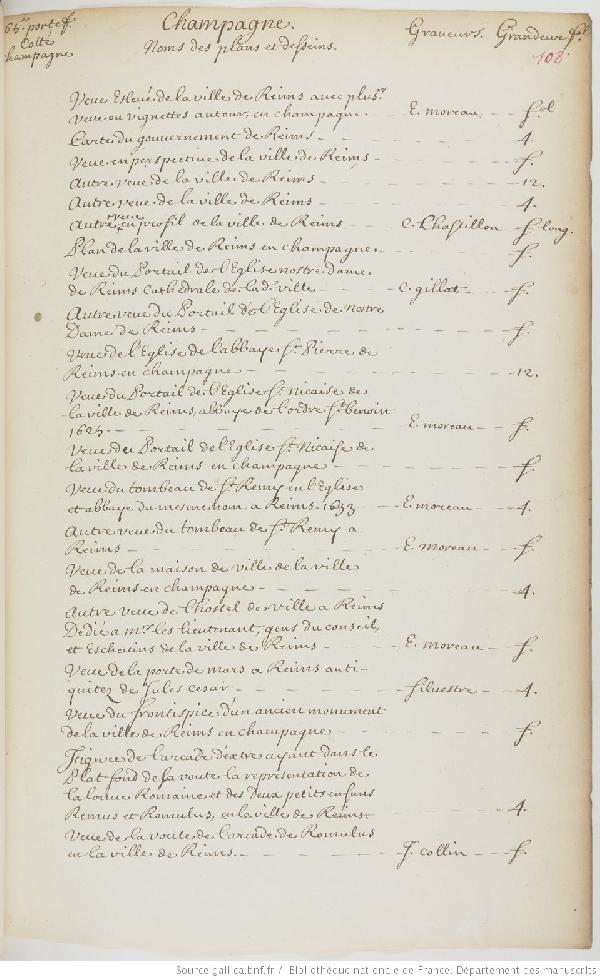 65e. portef.
Cotté
champagne
Champagne.
Noms des plans et desseins.
Graveurs. Grandeur fol
108
Veüe Eslevée de la ville de Reims avec plusrs
veue ou vignettes autour, en champagne. E. moreau. fol
Carte du gouvernement de Reims - 4.
Veue en perspective de la ville de Reims - f.
Autre veue de la ville de Reims - 12.
Autre veue de la ville de Reims - 4.
Autre veue en profil de la ville de Reims - C. Chastillon - f. long.
Plan de la ville de Reims en champagne. - f.
Veue du Portail de l'Eglise nostre Dame
de Reims Cathedrale de lad. ville - C. gillot - f.
Autre veue du Portail de l'Eglise de Nostre
Dame de Reims - f.
Veue de l'Eglise de l'abbaye St. Pierre de
Reims en champagne - 12.
Veue du Portail de l'Eglise St. Nicaise de
la ville de Reims, abbaye de l'ordre St. benoist
1625. - E. moreau - f.
Veue du Portail de l'Eglise St. Nicaise de
la ville de Reims en champagne - f.
Veue du tombeau de St. Remy en l'Eglise
et abbaye du mesme nom a Reims. 1633 - E. moreau - 4.
Autre veue du tombeau de St. Remy a
Reims - E. Moreau - f.
Veue de la maison de ville de la ville
de Reims en champagne - 4.
Autre veue de l'hostel de ville a Reims
Dedié a mrs. les lieutenant, gens du conseil,
et Eschevins de la ville de Reims - E. moreau - f.
Veue de la porte de mars a Reims anti-
quitez de Jules Cesar - silvestre - 4.
Veue du frontispice d'un ancien monument
de la ville de Reims en champagne - f.
Figure de l'arcade dextre ayant dans le
Plat fond de la voute la representation de
la louve Romaine et des deux petits enfans
Remus et Romulus, en la ville de Reims - 4.
Veue de la voute de l'arcade de Romulus
en la ville de Reims. - J. Collin - f.
Source gallica.bnf.fr / Bibliothèque nationale de France. Département des manuscrits